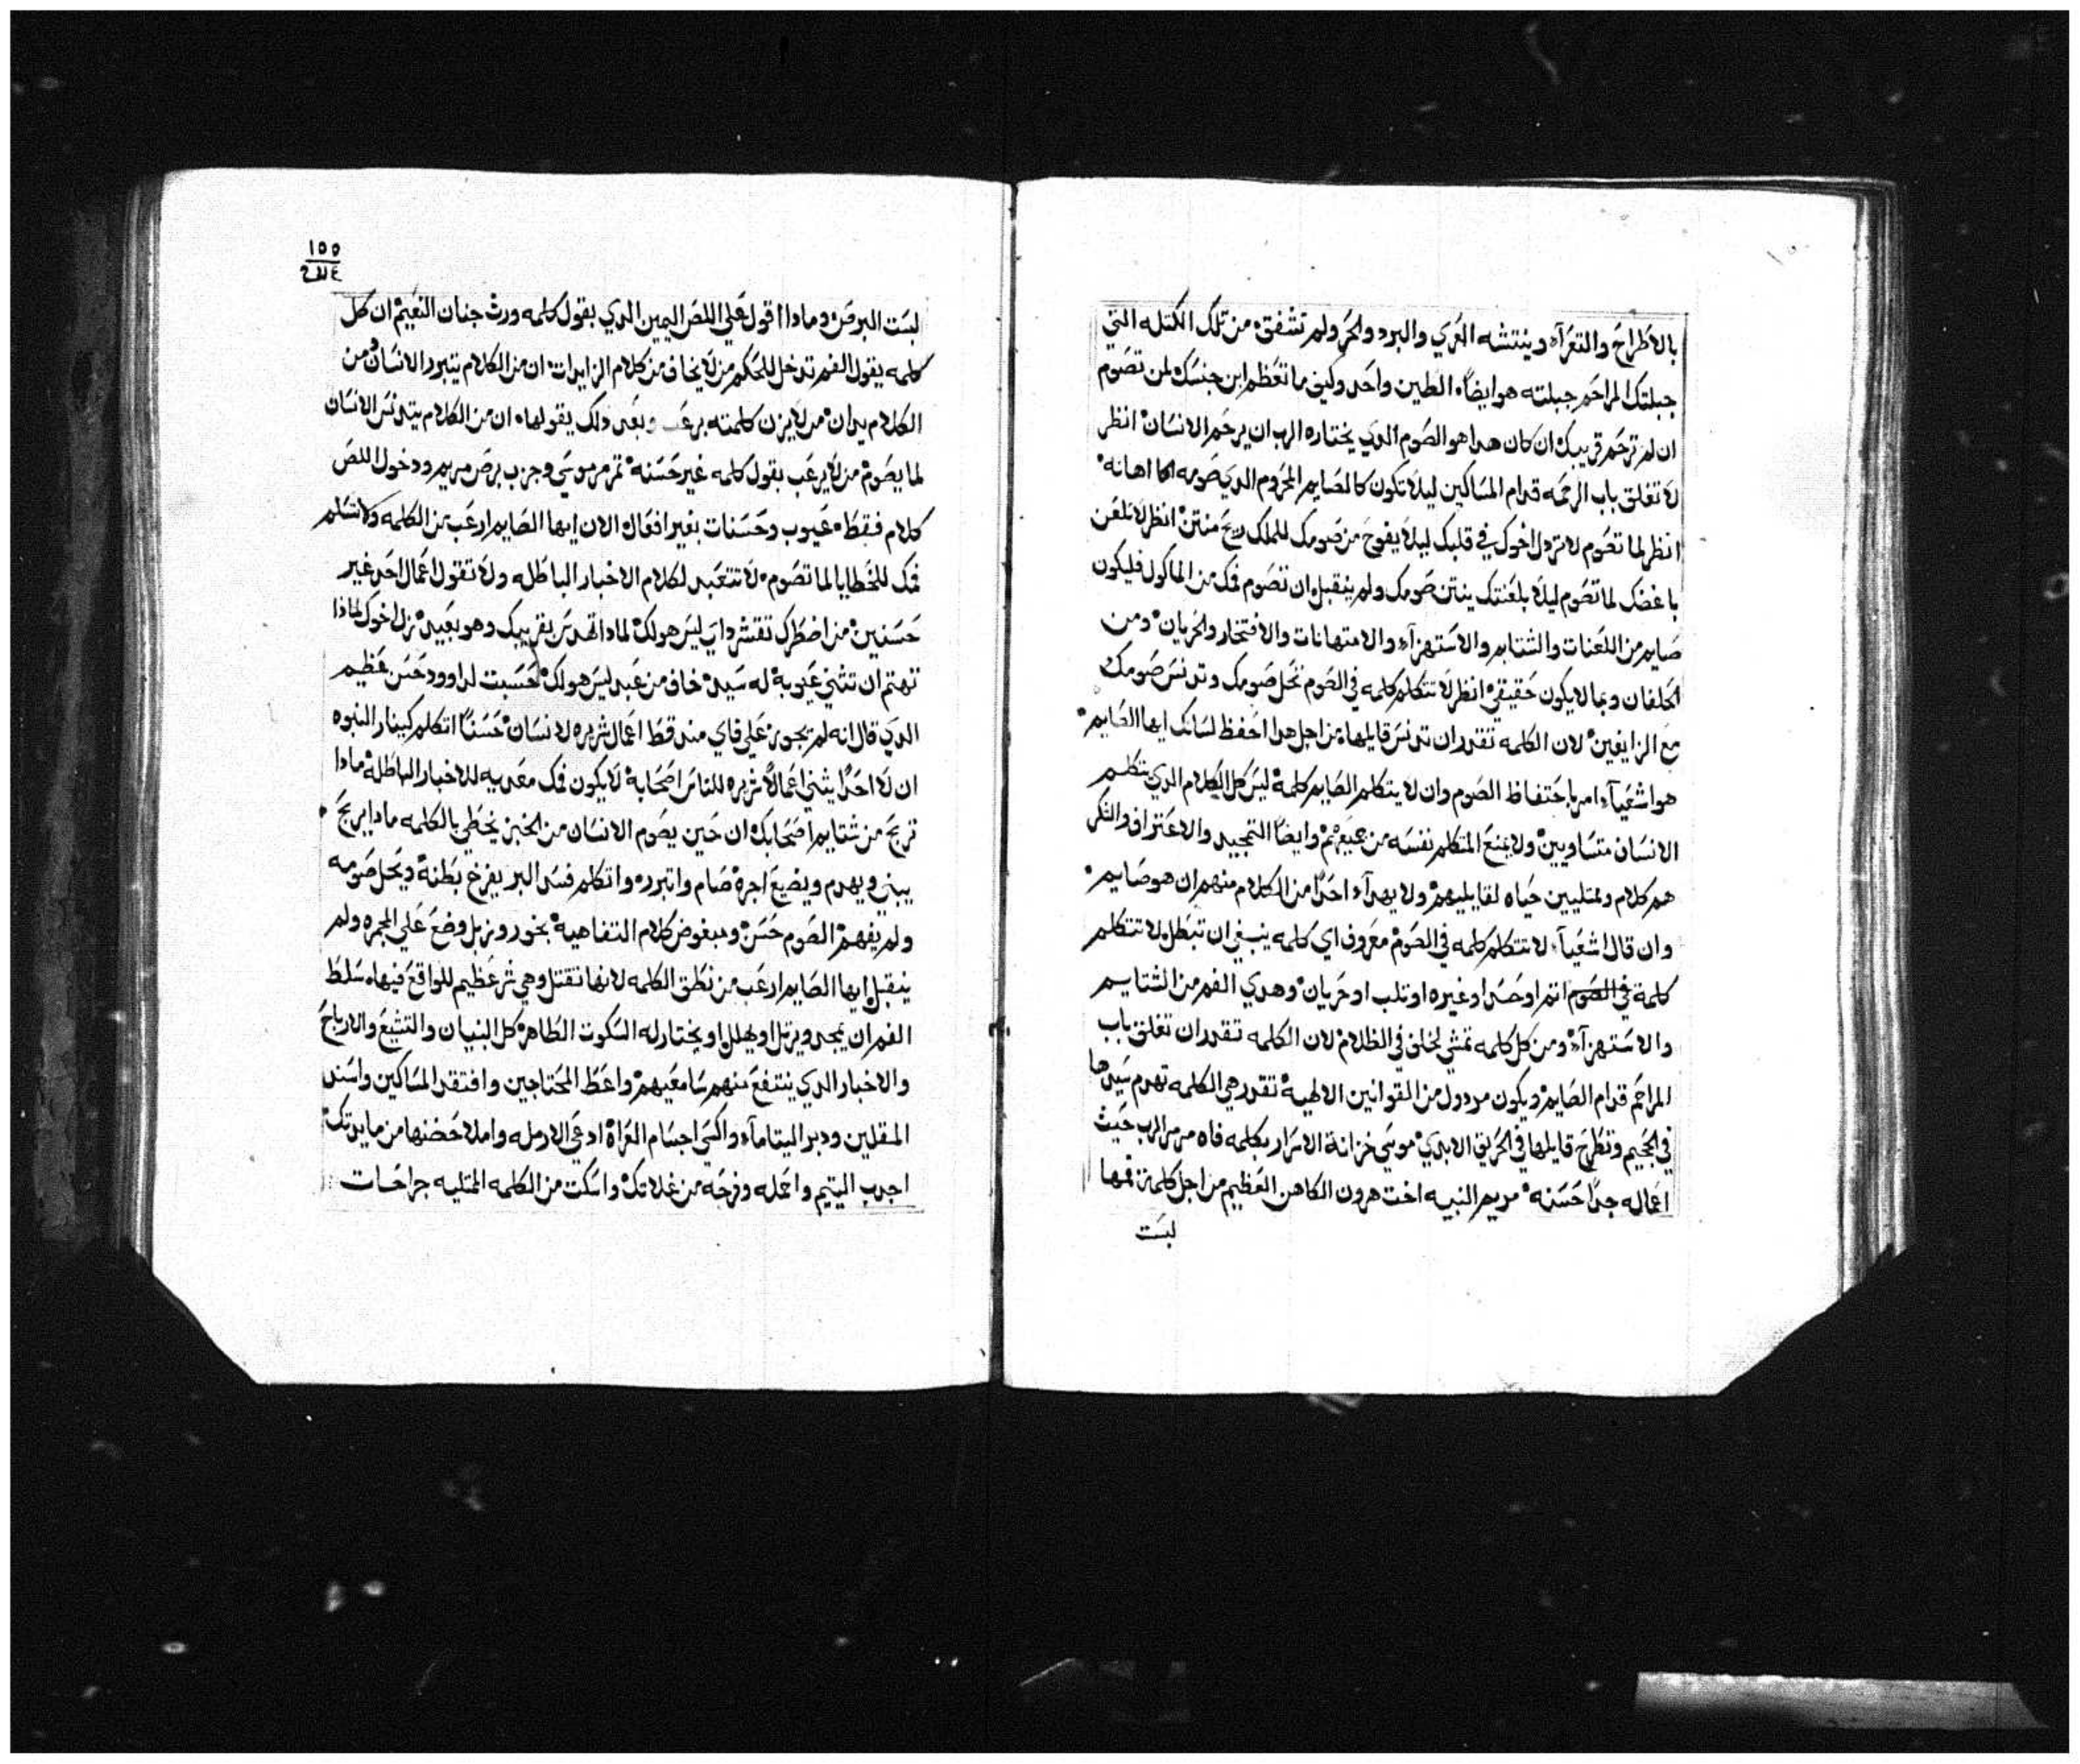 بالاطراح والتعرآء وينتشه العري والبرد والحر ولم تشفق من تلك الكتله التي
جبلتك المراحم جبلته هو ايضاً الطين واحد وكيف ما تعظم ابن جنسك لمن تصوم
ان لم ترحم قريبك ان كان هدا هو الصوم الدي يختاره الرب ان يرحم الانسان انظر
لا تغلق باب الرحمه قدام المساكين ليلا تكون كالصايم المحروم الدي صومه اهانه
انظر لما تصوم لا تردل اخوك في قلبك ليلا يفوح من صومك للملك ريح منتن انظر لا تلعن
باغضك لما تصوم ليلا بلعنتك ينتن صومك ولم ينقبل ان تصوم فمك من الماكول فليكون
صايم من اللعنات والشتايم والاستهزآء والامتهانات والافتخار والحريان ومن
الحلفان وبما لا يكون حقيقي انظر لا تتكلم كلمه في الصوم تحل صومك وتدنس صومك
مع الزايغين لان الكلمه تقدر ان تدنس قايلها من اجل هدا احفظ لسانك ايها الصايم
هو اشعيآء امر باحتفاظ الصوم وان لا يتكلم الصايم كلمة ليس كل الكلام الدي يتكلم
الانسان متساويين ولا يمنع المتكلم نفسه من جميعهم وايضاً التمجيد والاعتراف والشكر
هم كلام وممتليين حياه لقايليهم ولا يهدآء احداً من الكلام منهم ان هو صايم
وان قال اشعيآء لا تتكلم كلمه في الصوم معروف اي كلمه ينبغي ان تبطل لا تتكلم
كلمة في الصوم اتم او حسد او غيره او تلب او حريان وهدي الفم من الشتايم
والاستهزآء ومن كل كلمه تمشي لخلف في الظلام لان الكلمه تقدر ان تغلق باب
المراحم قدام الصايم ويكون مردول من القوانين الالهية تقدر هي الكلمه تهدم سيدها
في الجحيم وتطرح قايلها في الحريق الابدي موسي خزانة الاسرار بكلمه فاه مرمر الرب حيث
اعماله جداً حسنه مريم النبيه اخت هرون الكاهن العظيم من اجل كلمة فمها
لبست
١٥٥
لبست البرص ومادا اقول علي اللص اليمين الدي بقول كلمه ورث جنان النعيم ان كل
كلمه يقول الفم تدخل للحكم من لا يخاف من كلام الزايدات ان من الكلام يتبرر الانسان من
الكلام يدان من لا يزن كلمته برعب وبعد دلك يقولها ان من الكلام يتدنس الانسان
لما يصوم من لا يرعب بقول كلمه غير حسنه تمرمر موسي وجزب برص مريم ودخول اللص
كلام فقط عيوب وحسنات بغير افعال الان ايها الصايم ارعب من الكلمه ولا تسلم
فمك للخطايا لما تصوم لا تتعبد لكلام الاخبار الباطله ولا تقول اعمال احد غير
حسنين من اضطرك تفتش داي ليس هو لك لمادا تهدس بقريبك وهو بعيد نزل اخوك لمادا
تهتم ان تثني عيوبة له سيد خاف من عبد ليس هو لك حسبت لداوود حسن عظيم
الدي قال انه لم يجوز علي فاي مند قط اعمال شريره لانسان حسناً اتكلم كينار النبوه
ان لا احداً يثني اعمالاً شريره للناس اصحابة لا يكون فمك معديه للاخبار الباطلة مادا
تربح من شتايم اصحابك ان حين يصوم الانسان من الخبز يخطي بالكلمه مادا يربح
يبني ويهدم ويضيع اجرة صام واتبرر واتكلم فسد البر يفرخ بطنة ويحل صومه
ولم يفهم الصوم حسن ومبغوض كلام التفاهية بخور وزبل وضع علي المجره ولم
ينقبل ايها الصايم ارعب من نطق الكلمه لانها تقتل وهي شر عظيم للواقع فيها سلط
الفم ان يمجد ويرتل او يهلل او يختار له السكوت الطاهر كل البنيان والتشيع والارباح
والاخبار الدي ينتفع منهم سامعيهم واعظ المحتاجين وافتقد المساكين واسند
المقلين ودبر اليتامآء واكسي اجسام العراة ادعي الارمله واملا حضنها من مايدتك
اجدب اليتيم واعمله وفرحه من غلاتك واسكت من الكلمه الممتليه جراحات